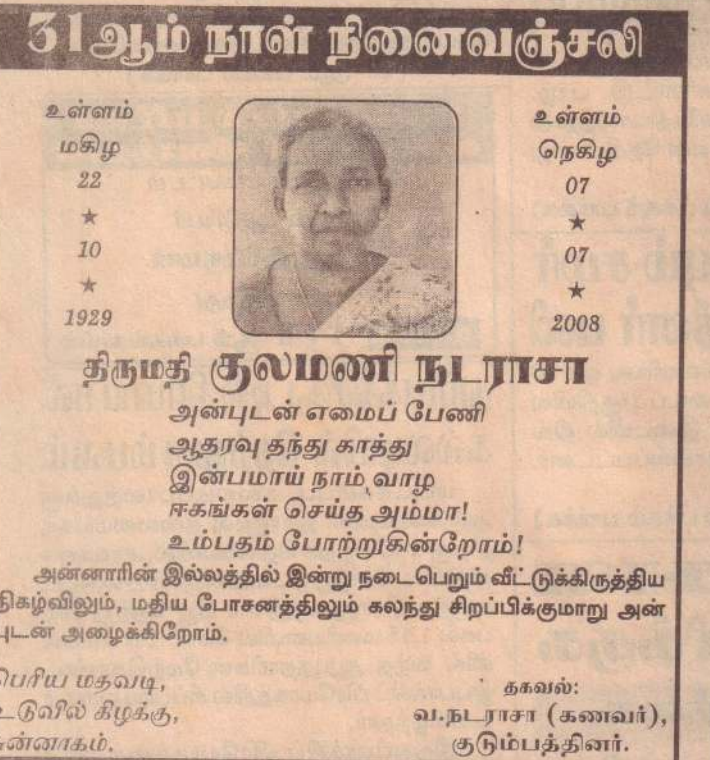 31ஆம் நாள் நினைவஞ்சலி
உள்ளம்
மகிழ
22
★
10
★
1929
உள்ளம்
நெகிழ
07
★
07
★
2008
திருமதி குலமணி நடராசா
அன்புடன் எமைப் பேணி
ஆதரவு தந்து காத்து
இன்பமாய் நாம் வாழ
ஈகங்கள் செய்த அம்மா!
உம்பதம் போற்றுகின்றோம்!
அன்னாரின் இல்லத்தில் இன்று நடைபெறும் வீட்டுக்கிருத்திய
நிகழ்விலும், மதிய போசனத்திலும் கலந்து சிறப்பிக்குமாறு அன்
புடன் அழைக்கிறோம்.
பெரிய மதவடி,
உடுவில் கிழக்கு,
சுன்னாகம்.
தகவல்:
வ.நடராசா (கணவர்),
குடும்பத்தினர்.